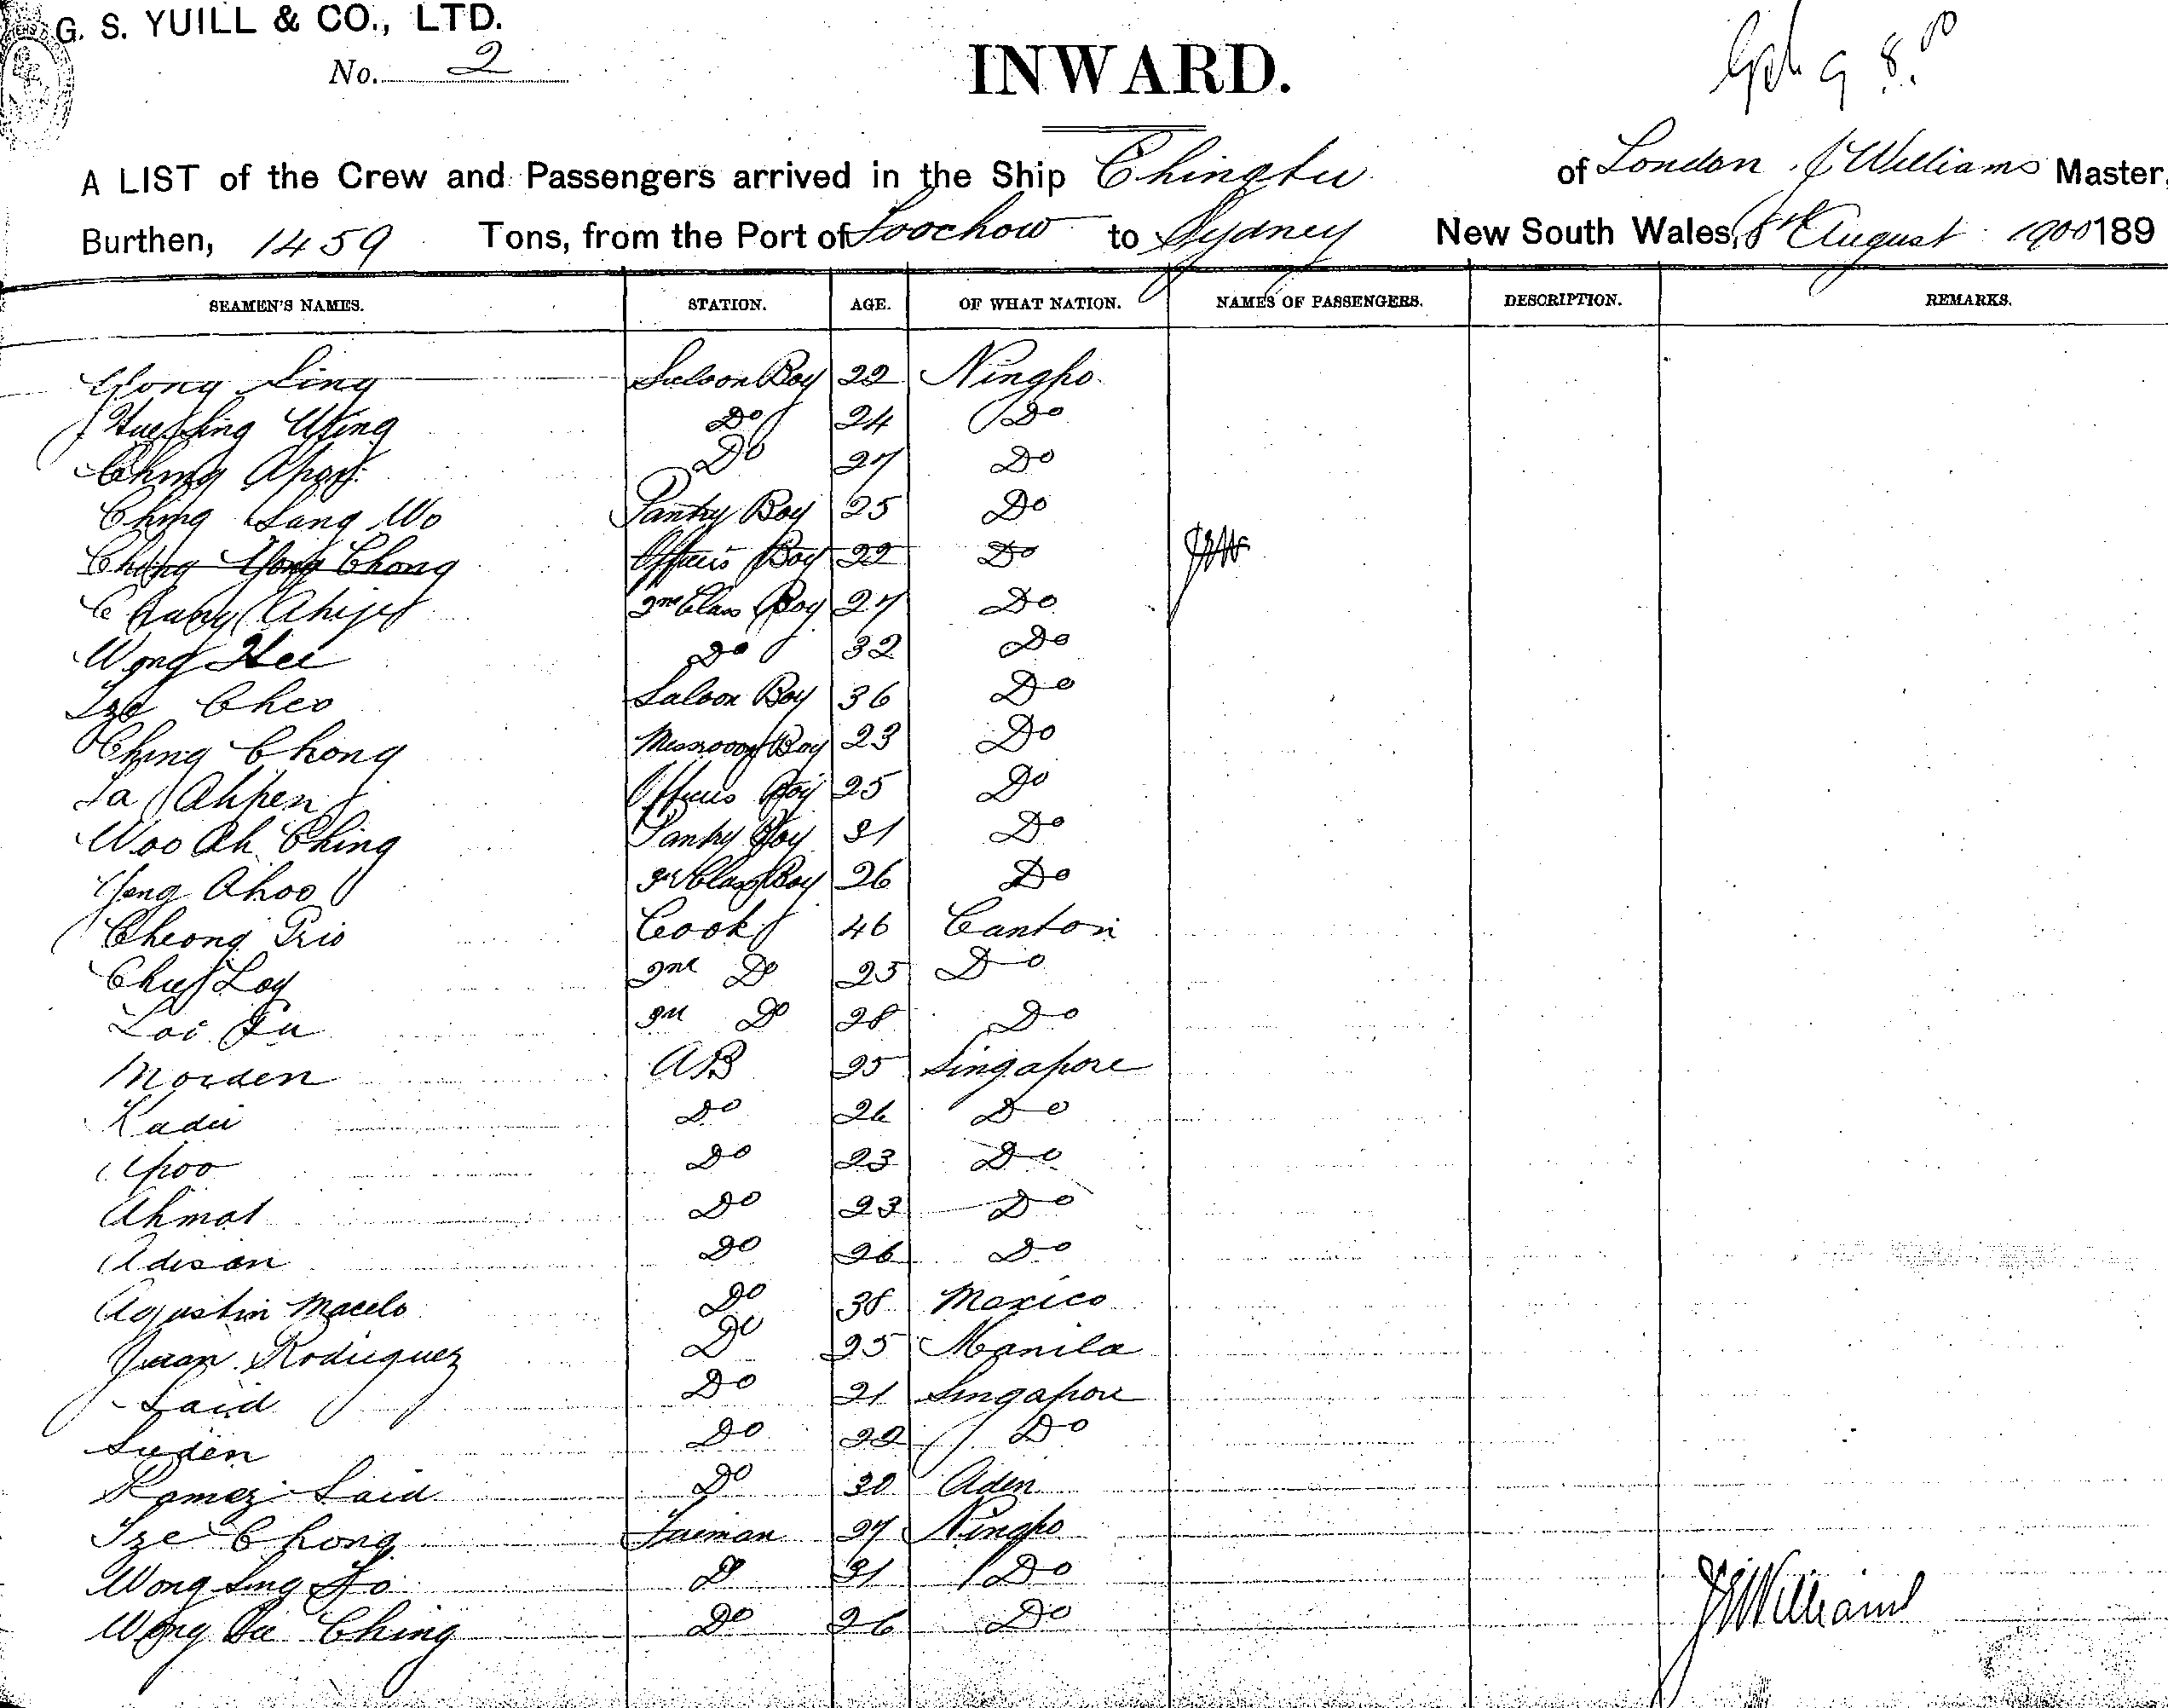 G. S. YUILL & CO., LTD.
No. 2
INWARD.
A LIST of the Crew and Passengers arrived in the Ship Chingtu of London J Williams Master,
Burthen, 1459 Tons, from the Port of Foochow to Sydney New South Wales, 8th August 1900 189
SEAMEN'S NAMES. STATION. AGE. OF WHAT NATION. NAMES OF PASSENGERS. DESCRIPTION. REMARKS.
Yong Ling Saloon Boy 22 Ningpo.
Do 24 Do
Ching Do 27 Do
Ching Sang Wo Pantry Boy 25 Do
Ching Yong Chong Officers Boy 22 Do JEW
2nd Class Boy 27 Do
Wong Hee Do 32 Do
Tze Cheo Saloon Boy 36 Do
Ching Chong Messroom Boy 23 Do
Officers Boy 25 Do
Woo Ah Ching Pantry Boy 31 Do
Yong Ahoo Class Boy 26 Do
Cheong Cook 46 Canton
Loy 2nd Do 25 Do
Loi Fu 3rd Do 28 Do
Morden AB 25 Singapore
Kadir Do 26 Do
Do 23 Do
Ahmat Do 23 Do
Adisan Do 26 Do
Agustin Macelo Do 38 Mexico
Juan Rodriguez Do 25 Manila
Said Do 21 Singapore
Suden Do 22 Do
Said Do 30 Aden
Tze Chong Fireman 27 Ningpo
Wong Sing Do 31 Do
Wong Ching Do 26 Do
JEWilliams